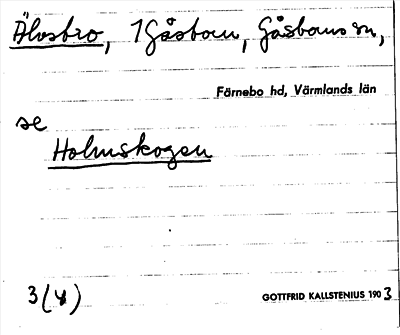 Älvsbro, 1 Gåsborn, Gåsborns sn,
Färnebo hd, Värmlands län
se
Holmskogen
3(4)
GOTTFRID KALLSTENIUS 1903